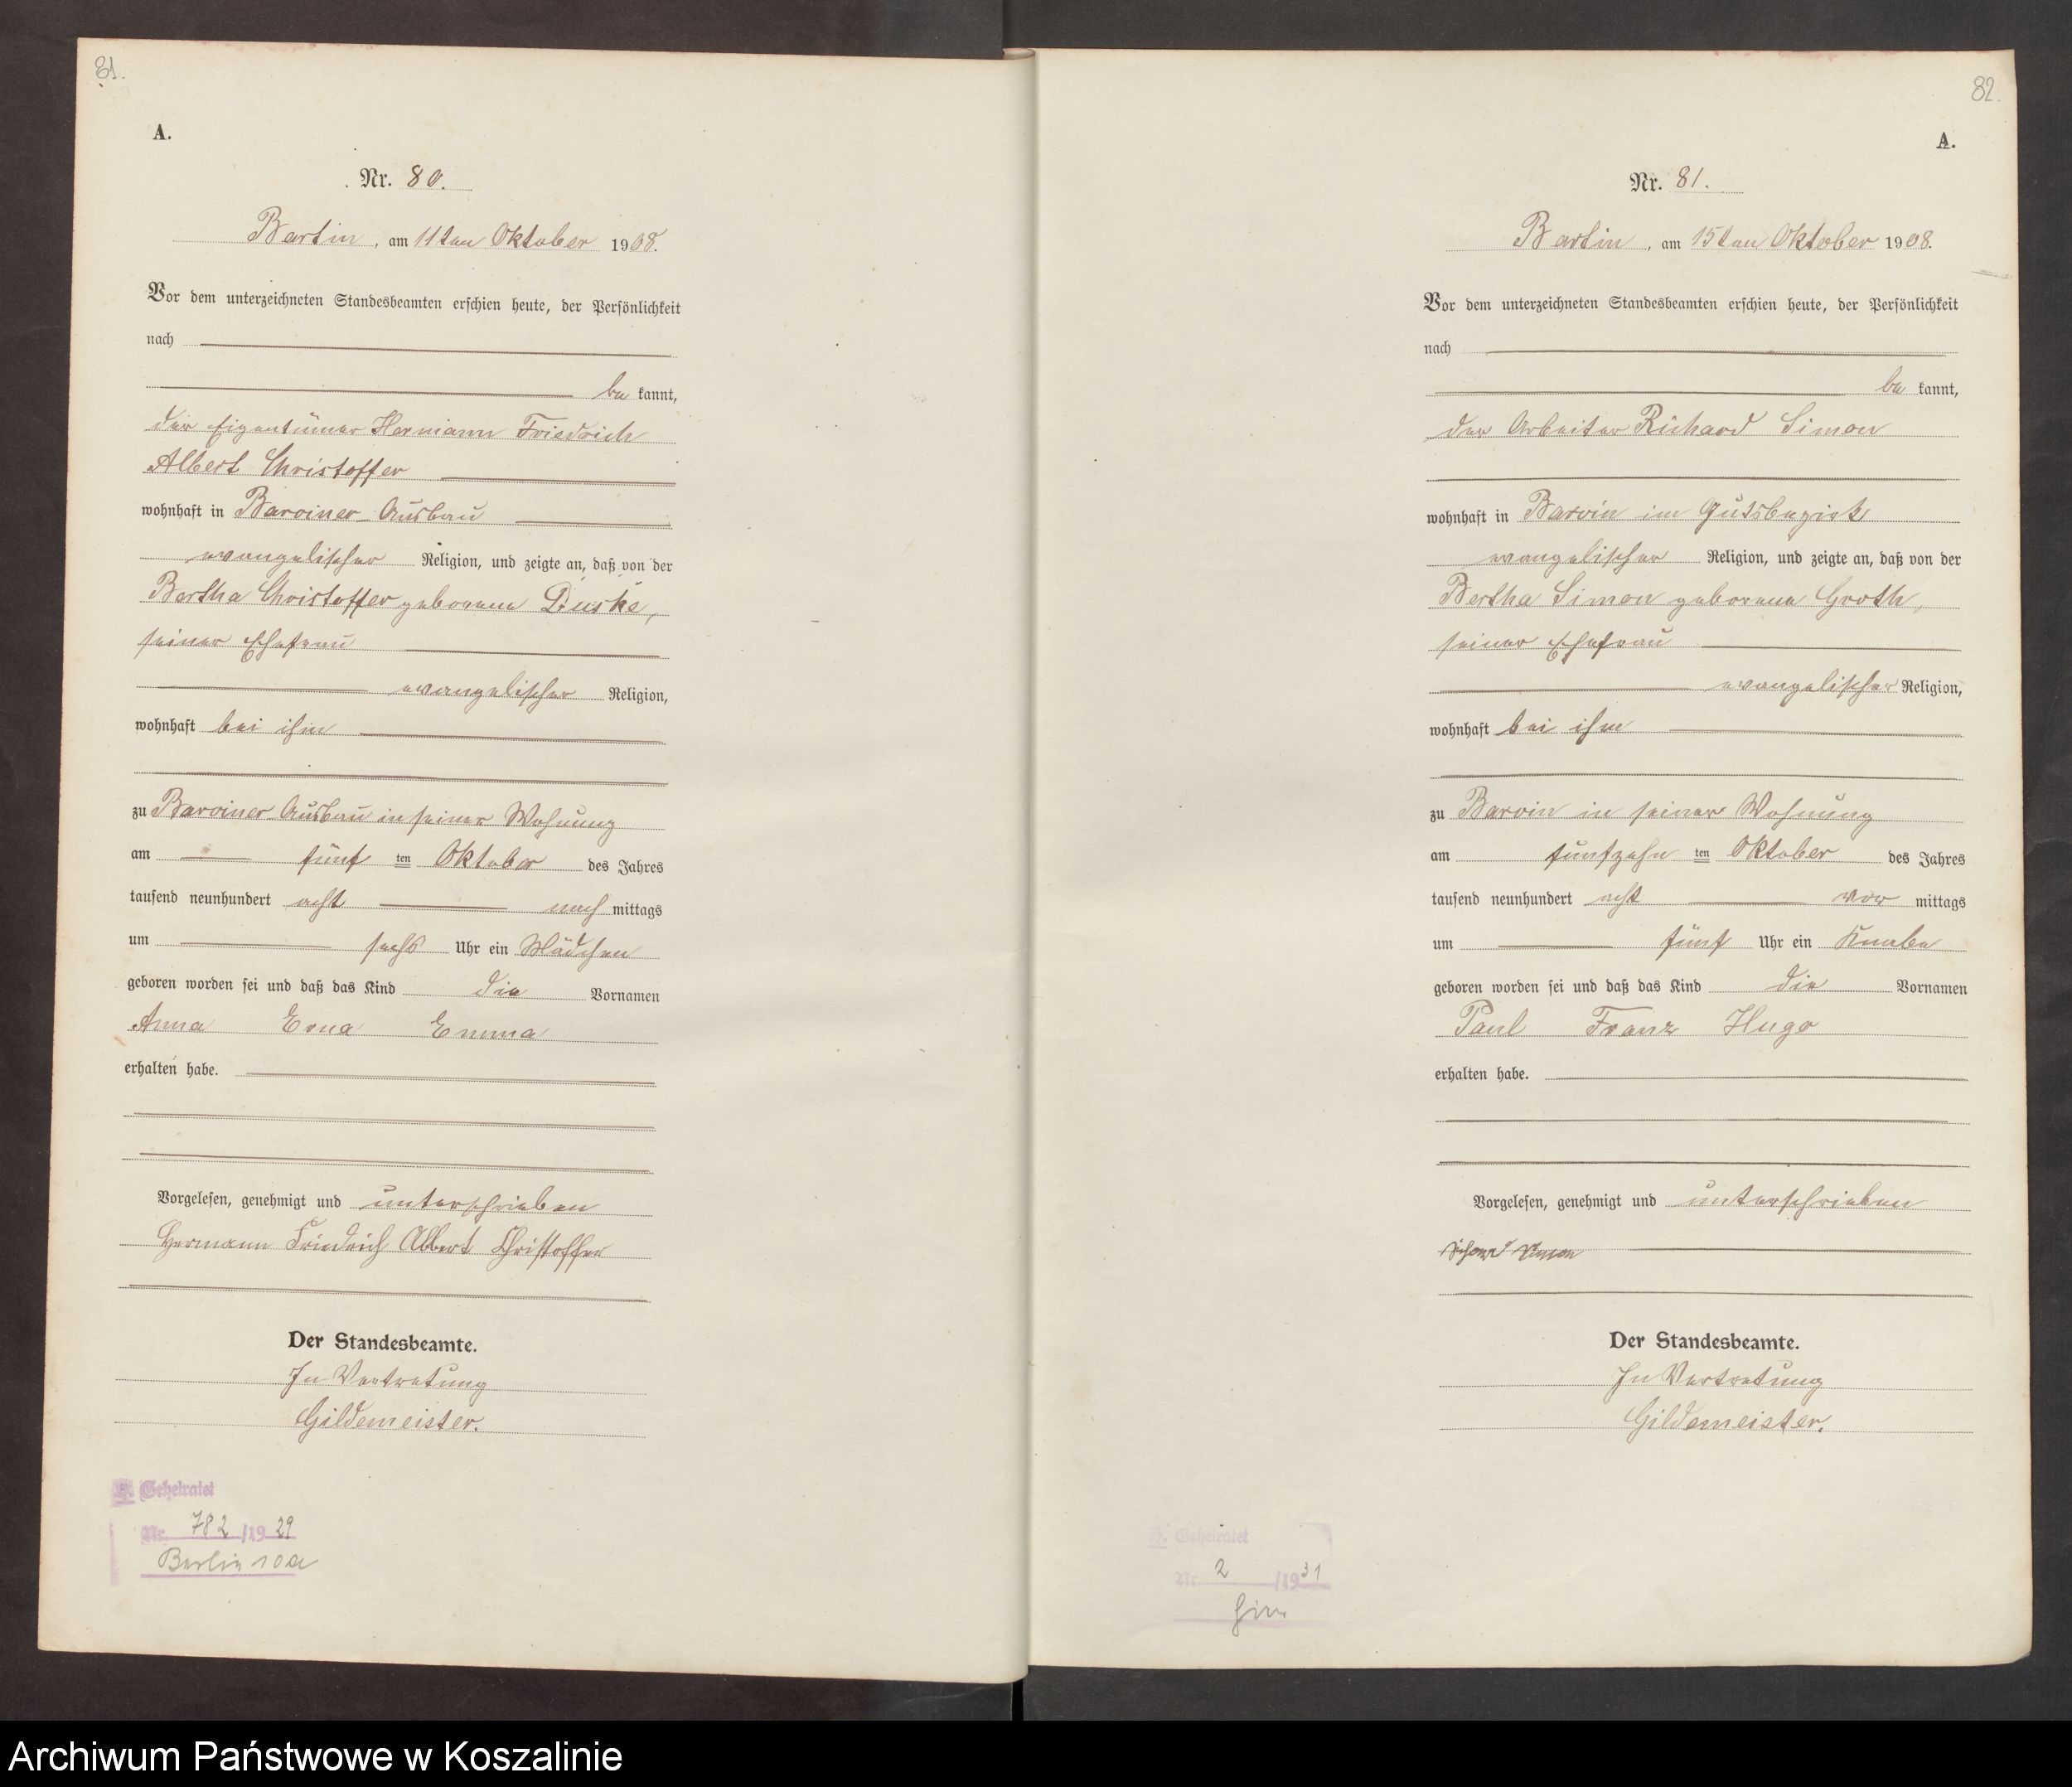 81.
A.
Nr. 80.
Bartin, am 11ten Oktober 1908.
Vor dem unterzeichneten Standesbeamten erschien heute, der Persönlichkeit
nach
be kannt,
der Eigentümer Hermann Friedrich
Albert Christoffer
wohnhaft in Barviner Ausbau
evangelischer Religion, und zeigte an, daß von der
Bertha Christoffer geborene Duske,
seiner Ehefrau
evangelischer Religion,
wohnhaft bei ihm
zu Barviner Ausbau in seiner Wohnung
am fünf ten Oktober des Jahres
tausend neunhundert acht nach mittags
um sechs Uhr ein Mädchen
geboren worden sei und daß das Kind die Vornamen
Anna Erna Emma
erhalten habe.
Vorgelesen, genehmigt und unterschrieben
Hermann Friedrich Albert Christoffer
Der Standesbeamte.
In Vertretung
Gildemeister.
Geheiratet
Nr. 782/1929
Berlin 10a
82.
A.
Nr. 81.
Bartin, am 15ten Oktober 1908.
Vor dem unterzeichneten Standesbeamten erschien heute, der Persönlichkeit
nach
be kannt,
der Arbeiter Richard Simon
wohnhaft in Barvin im Gutsbezirk
evangelischer Religion, und zeigte an, daß von der
Bertha Simon geborene Groth,
seiner Ehefrau
evangelischer Religion,
wohnhaft bei ihm
zu Barvin in seiner Wohnung
am fünfzehn ten Oktober des Jahres
tausend neunhundert acht vor mittags
um fünf Uhr ein Knabe
geboren worden sei und daß das Kind die Vornamen
Paul Franz Hugo
erhalten habe.
Vorgelesen, genehmigt und unterschrieben
Simon
Der Standesbeamte.
In Vertretung
Gildemeister.
Geheiratet
Nr. 2/1931
hier
Archiwum Państwowe w Koszalinie